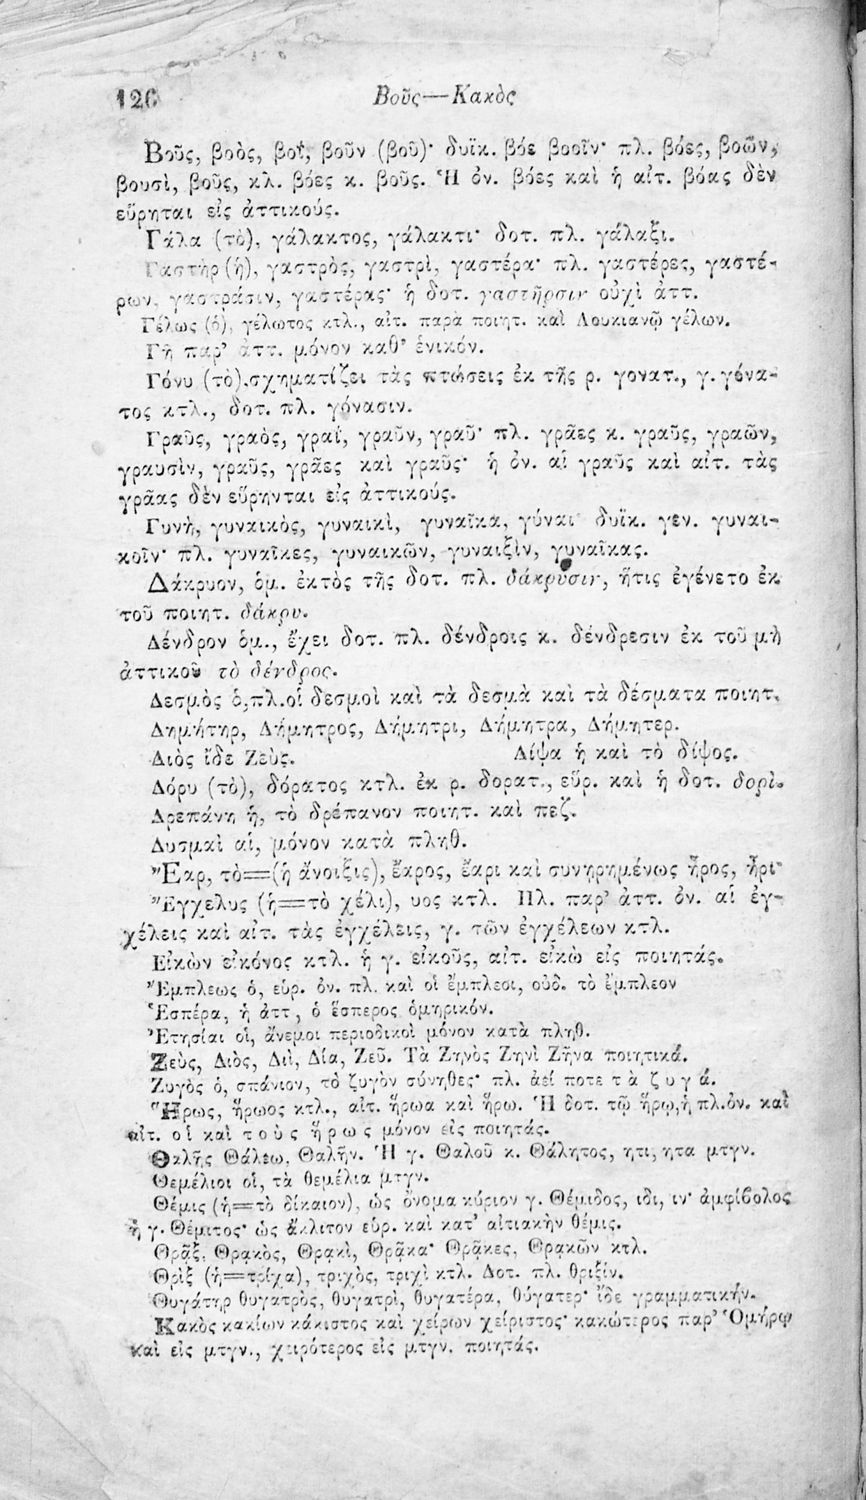 126
Βοῦς—Κακὸς
Βοῦς, βοὸς, βοῒ, βοῦν (βοῦ)· δυϊκ. βόε βοοῖν· πλ. βόες, βοῶν,
βουσὶ, βοῦς, κλ. βόες κ. βοῦς. Ἡ ὀν. βόες καὶ ἡ αἰτ. βόας δὲν
εὕρηται εἰς ἀττικούς.
Γάλα (τὸ), γάλακτος, γάλακτι· δοτ. πλ. γάλαξι.
Γαστὴρ (ἡ), γαστρὸς, γαστρὶ, γαστέρα· πλ. γαστέρες, γαστέ-
ρων, γαστράσιν, γαστέρας· ἡ δοτ. γαστῆρσιν οὐχὶ ἀττ.
Γέλως (ὁ), γέλωτος κτλ., αἰτ. παρὰ ποιητ. καὶ Λουκιανῷ γέλων.
Γῆ παρ' ἀττ. μόνον καθ' ἑνικόν.
Γόνυ (τὸ).σχηματίζει τὰς πτώσεις ἐκ τῆς ρ. γονατ., γ. γόνα-
τος κτλ., δοτ. πλ. γόνασιν.
Γραῦς, γραὸς, γραῒ, γραῦν, γραῦ· πλ. γρᾶες κ. γραῦς, γραῶν,
γραυσὶν, γραῦς, γρᾶες καὶ γραῦς· ἡ ὀν. αἱ γραῦς καὶ αἰτ. τὰς
γρᾶας δὲν εὕρηνται εἰς ἀττικούς.
Γυνὴ, γυναικὸς, γυναικὶ, γυναῖκα, γύναι· δυϊκ. γεν. γυναι-
κοῖν· πλ. γυναῖκες, γυναικῶν, γυναιξὶν, γυναῖκας.
Δάκρυον, ὁμ. ἐκτὸς τῆς δοτ. πλ. δάκρυσιν, ἥτις ἐγένετο ἐκ
τοῦ ποιητ. δάκρυ.
Δένδρον ὁμ., ἔχει δοτ. πλ. δένδροις κ. δένδρεσιν ἐκ τοῦ μὴ
ἀττικοῦ τὸ δένδρος.
Δεσμὸς ὁ,πλ.οἱ δεσμοὶ καὶ τὰ δεσμὰ καὶ τὰ δέσματα ποιητ.
Δημήτηρ, Δήμητρος, Δήμητρι, Δήμητρα, Δήμητερ.
Διὸς ἴδε Ζεὺς. Δίψα ἡ καὶ τὸ δίψος.
Δόρυ (τὸ), δόρατος κτλ. ἐκ ρ. δορατ., εὕρ. καὶ ἡ δοτ. δορὶ.
Δρεπάνη ἡ, τὸ δρέπανον ποιητ. καὶ πεζ.
Δυσμαὶ αἱ, μόνον κατὰ πληθ.
Ἔαρ, τὸ=(ἡ ἄνοιξις), ἔαρος, ἔαρι καὶ συνῃρημένως ἦρος, ἦρι·
Ἔγχελυς (ἡ=τὸ χέλι), υος κτλ. Πλ. παρ' ἀττ. ὀν. αἱ ἐγ-
χέλεις καὶ αἰτ. τὰς ἐγχέλεις, γ. τῶν ἐγχέλεων κτλ.
Εἰκὼν εἰκόνος κτλ. ἡ γ. εἰκοῦς, αἰτ. εἰκὼ εἰς ποιητάς.
Ἔμπλεως ὁ, εὑρ. ὀν. πλ. καὶ οἱ ἔμπλεοι, οὐδ. τὸ ἔμπλεον
Ἑσπέρα, ἡ ἀττ, ὁ ἕσπερος ὁμηρικόν.
Ἐτησίαι οἱ, ἄνεμοι περιοδικοὶ μόνον κατὰ πληθ.
Ζεὺς, Διὸς, Διὶ, Δία, Ζεῦ. Τὰ Ζηνὸς Ζηνὶ Ζῆνα ποιητικά.
Ζυγὸς ὁ, σπάνιον, τὸ ζυγὸν σύνηθες· πλ. ἀεί ποτε τὰ ζυγά.
Ἥρως, ἥρωος κτλ., αἰτ. ἥρωα καὶ ἥρω. Ἡ δοτ. τῷ ἥρῳ,ἡ πλ.ὀν. καὶ
αἰτ. οἱ καὶ τοὺς ἥρως μόνον εἰς ποιητάς.
Θαλῆς Θάλεω, Θαλῆν. Ἡ γ. Θαλοῦ κ. Θάλητος, ητι, ητα μτγν.
Θεμέλιοι οἱ, τὰ θεμέλια μτγν.
Θέμις (ἡ=τὸ δίκαιον), ὡς ὄνομα κύριον γ. Θέμιδος, ιδι, ιν· ἀμφίβολος
ἡ γ. Θέμιτος· ὡς ἄκλιτον εὑρ. καὶ κατ' αἰτιακὴν θέμις.
Θρᾷξ, Θρᾳκὸς, Θρᾳκὶ, Θρᾷκα· Θρᾷκες, Θρᾳκῶν κτλ.
Θρὶξ (ἡ=τρίχα), τριχὸς, τριχὶ κτλ. Δοτ. πλ. θριξίν.
Θυγάτηρ θυγατρὸς, θυγατρὶ, θυγατέρα, θύγατερ· ἴδε γραμματικήν.
Κακὸς κακίων κάκιστος καὶ χείρων χείριστος· κακώτερος παρ' Ὁμήρῳ
καὶ εἰς μτγν., χειρότερος εἰς μτγν. ποιητάς.